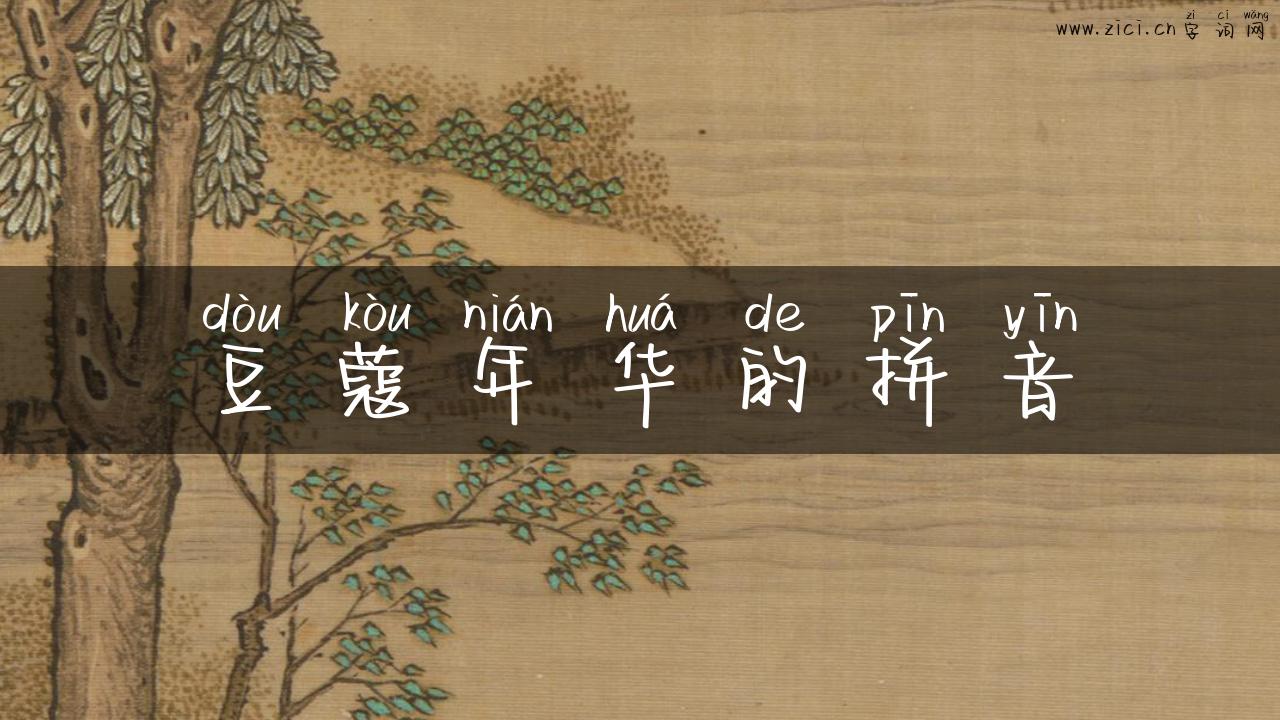 zì cí wǎng
www.zici.cn 字词网
dòu kòu nián huá de pīn yīn
豆蔻年华的拼音